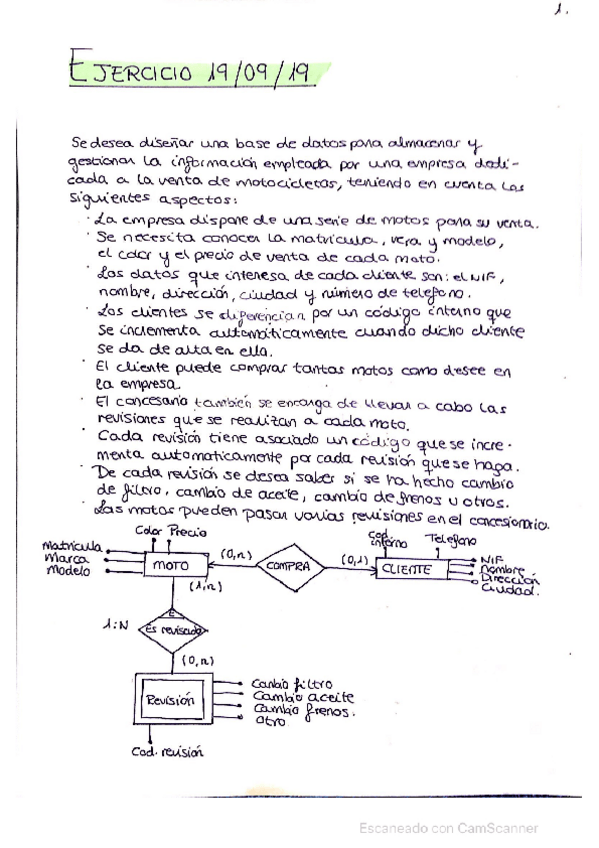 1.
EJERCICIO 19/09/19
Se desea diseñar una base de datos para almacenar y
gestionar la información empleada por una empresa dedi-
cada a la venta de motocicletas, teniendo en cuenta los
siguientes aspectos:
· La empresa dispone de una serie de motos para su venta.
· Se necesita conocer la matrícula, vera y modelo,
el color y el precio de venta de cada moto.
· Los datos que interesa de cada cliente son: el NIF,
nombre, dirección, ciudad y número de telefono.
· Los clientes se diferencian por un código interno que
se incrementa automáticamente cuando dicho cliente
se da de alta en ella.
· El cliente puede comprar tantas motos como desee en
la empresa.
· El concesario también se encarga de llevar a cabo las
revisiones que se realizan a cada moto.
· Cada revisión tiene asociado un código que se incre-
menta automaticamente por cada revisión que se haga.
· De cada revisión se desea saber si se ha hecho cambio
de filtro, cambio de aceite, cambio de frenos u otros.
· Las motos pueden pasar varias revisiones en el concesionario.
Color Precio
Cod. interno
Telefono
Matrícula
Marca
Modelo
MOTO
(0,n)
COMPRA
(0,1)
CLIENTE
NIF
Nombre
Dirección
Ciudad.
(1,n)
1:N
E
Es revisado
(0,n)
Revisión
Cambio filtro
Cambio aceite
Cambio frenos.
otro.
Cod. revisión
Escaneado con CamScanner